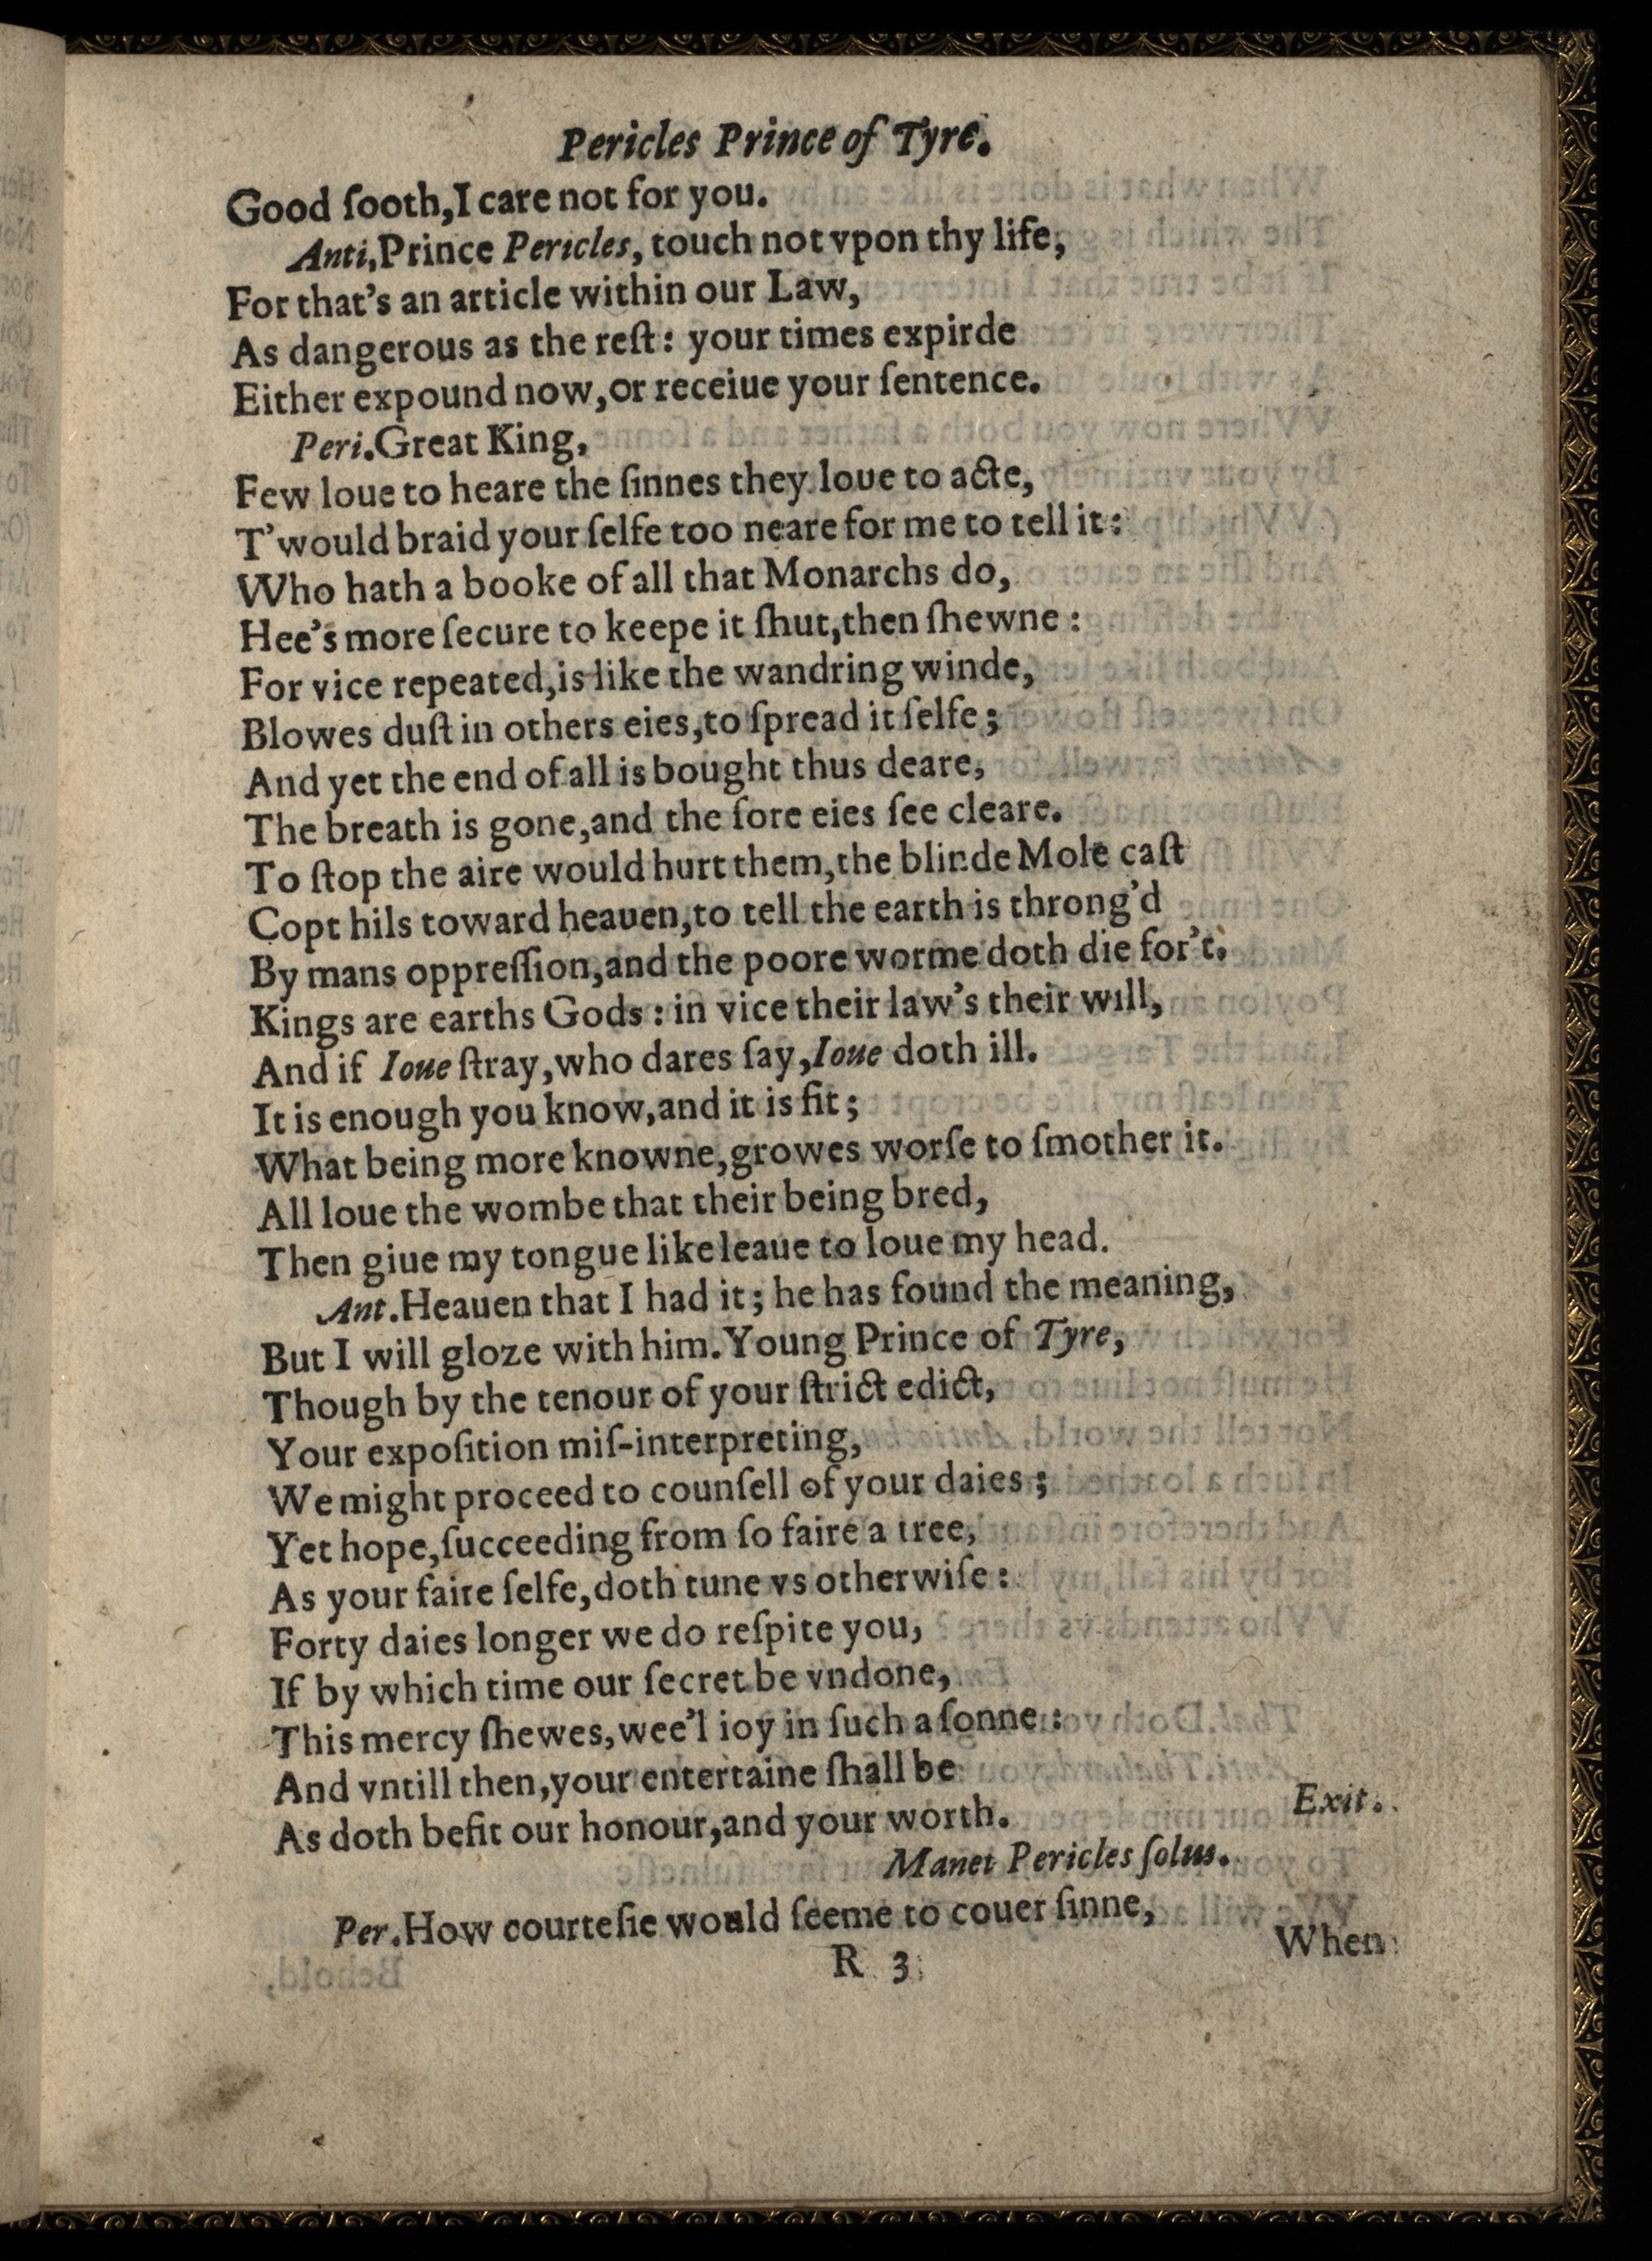 Pericles Prince of Tyre.
Good ſooth,I care not for you.
Anti,Prince Pericles, touch not vpon thy life,
For that's an article within our Law,
As dangerous as the reſt: your times expirde
Either expound now,or receiue your ſentence.
Peri.Great King,
Few loue to heare the ſinnes they loue to acte,
T'would braid your ſelfe too neare for me to tell it:
Who hath a booke of all that Monarchs do,
Hee's more ſecure to keepe it ſhut,then ſhewne:
For vice repeated,is like the wandring winde,
Blowes duſt in others eies,to ſpread it ſelfe;
And yet the end of all is bought thus deare,
The breath is gone,and the ſore eies ſee cleare.
To ſtop the aire would hurt them,the blinde Mole caſt
Copt hils toward heauen,to tell the earth is throng'd
By mans oppreſſion,and the poore worme doth die for't.
Kings are earths Gods: in vice their law's their will,
And if Ioue ſtray,who dares ſay,Ioue doth ill.
It is enough you know,and it is fit;
What being more knowne,growes worſe to ſmother it.
All loue the wombe that their being bred,
Then giue my tongue like leaue to loue my head.
Ant.Heauen that I had it; he has found the meaning,
But I will gloze with him. Young Prince of Tyre,
Though by the tenour of your ſtrict edict,
Your expoſition miſ-interpreting,
We might proceed to counſell of your daies;
Yet hope,ſucceeding from ſo faire a tree,
As your faire ſelfe,doth tune vs otherwiſe:
Forty daies longer we do reſpite you,
If by which time our ſecret be vndone,
This mercy ſhewes,wee'l ioy in ſuch a ſonne:
And vntill then,your entertaine ſhall be
As doth befit our honour,and your worth. Exit.
Manet Pericles ſolus.
Per.How courteſie would ſeeme to couer ſinne,
R 3 When